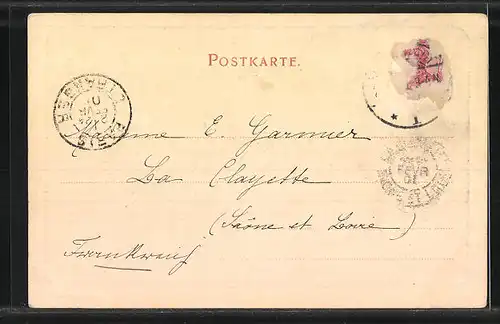 POSTKARTE.
Madame E. Garnier
La Clayette
(Saône et Loire)
Frankreich